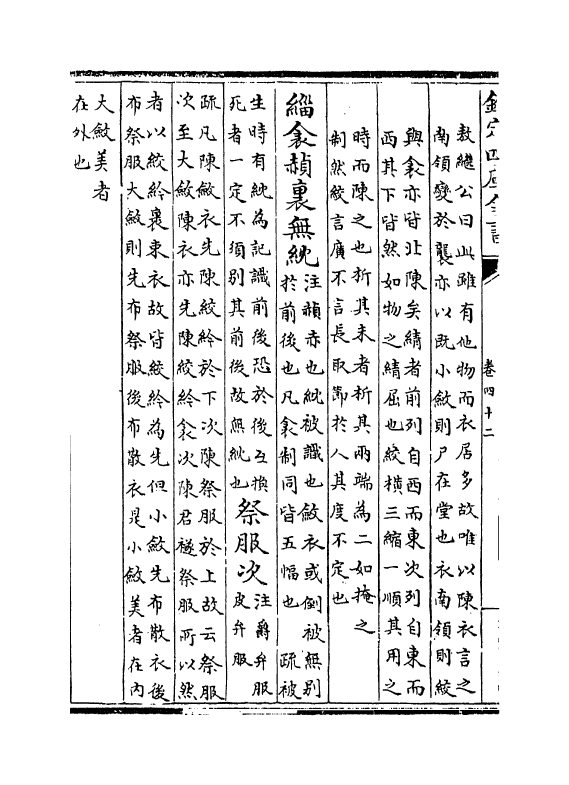 欽定四庫全書 卷四十二
敖繼公曰此雖有他物而衣居多故唯以陳衣言之
南領變於襲亦以既小斂則尸在堂也衣南領則絞
與衾亦皆北陳矣綪者前列自西而東次列自東而
西其下皆然如物之綪屈也絞橫三縮一順其用之
時而陳之也析其末者析其兩端為二如掩之
制然絞言廣不言長取節於人其度不定也
緇衾赬裏無紞
注赬赤也紞被識也斂衣或倒被無別
於前後也凡衾制同皆五幅也 疏被
生時有紞為記識前後恐於後互換
死者一定不須別其前後故無紞也
祭服次
注爵弁服
皮弁服
疏凡陳斂衣先陳絞紟於下次陳祭服於上故云祭服
次至大斂陳衣亦先陳絞紟衾次陳君襚祭服所以然
者以絞紟裹束衣故皆絞紟為先但小斂先布散衣後
布祭服大斂則先布祭服後布散衣是小斂美者在內
大斂美者
在外也